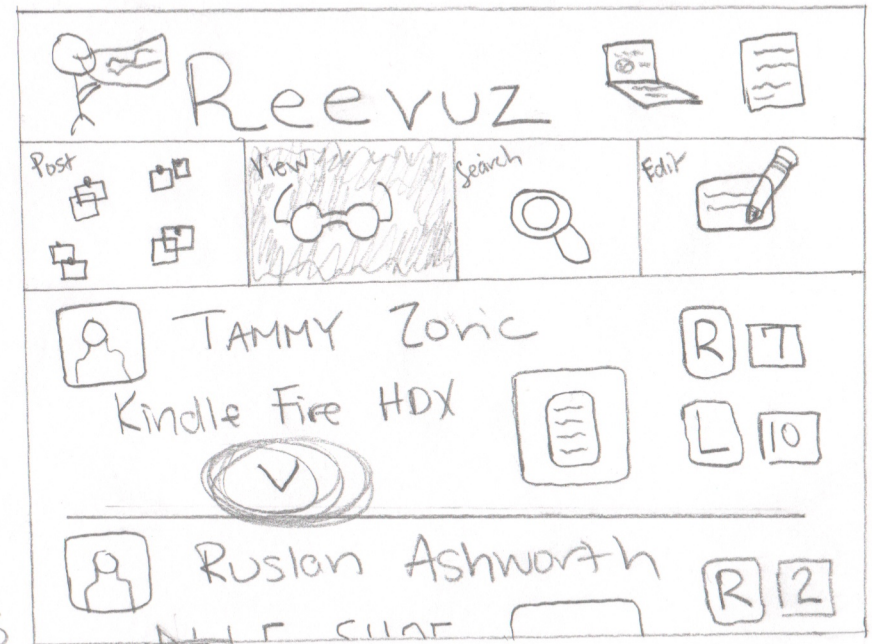 Reevuz
Post View Search Edit
TAMMY Zoric R 7
Kindle Fire HDX L 10
V
Ruslan Ashworth R 2